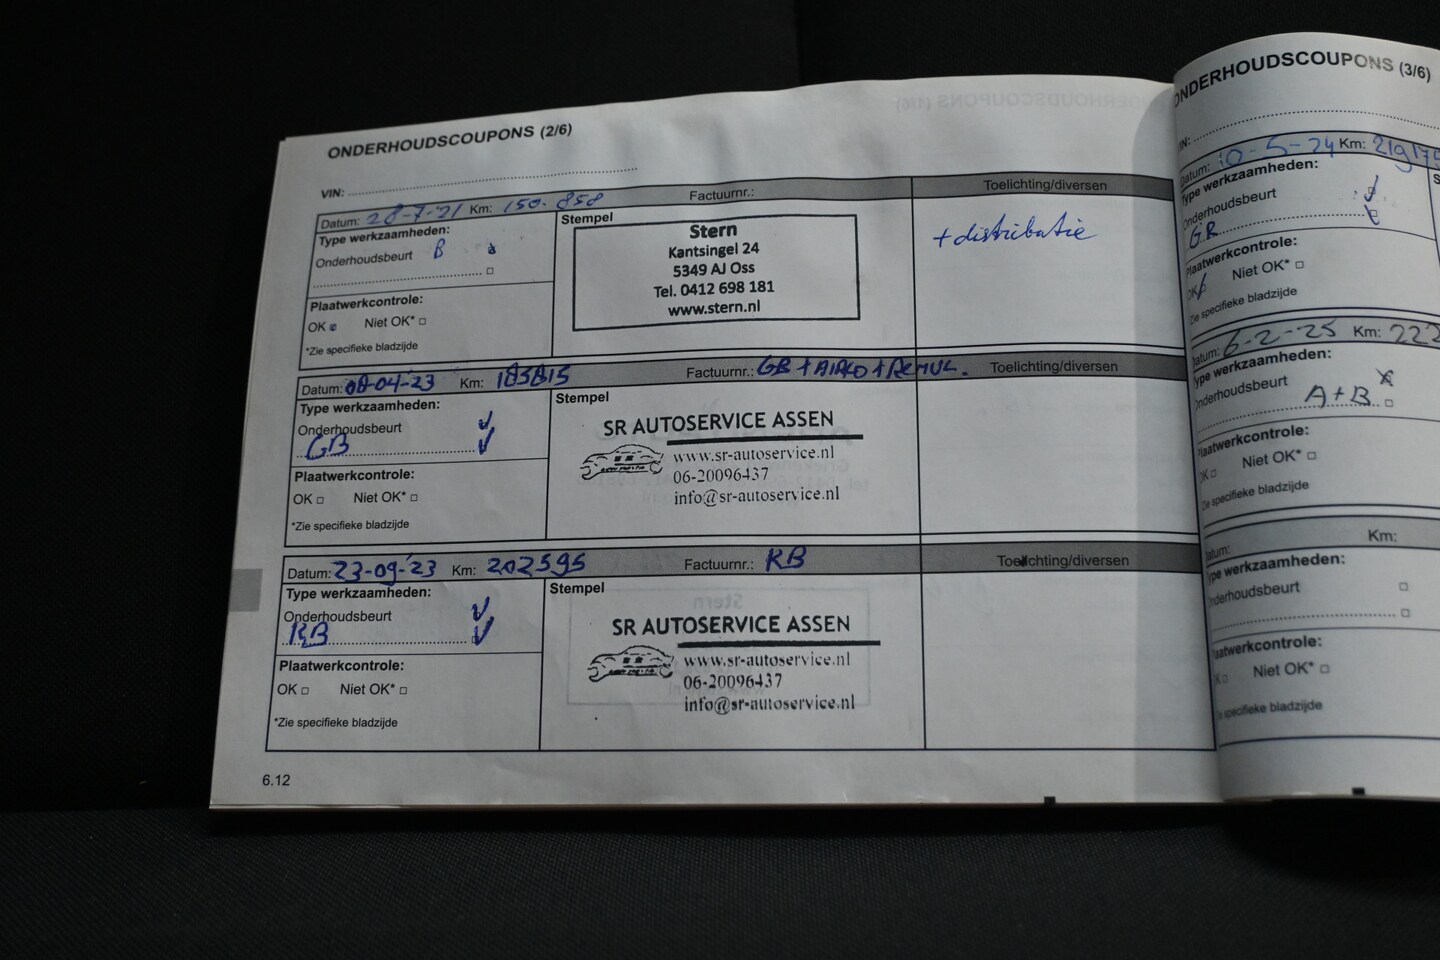 ONDERHOUDSCOUPONS (2/6)
VIN:
Datum: 28-7-'21 Km: 150.858 Factuurnr.: Toelichting/diversen
Type werkzaamheden:
Onderhoudsbeurt B
Plaatwerkcontrole:
OK Niet OK*
*Zie specifieke bladzijde
Stempel
Stern
Kantsingel 24
5349 AJ Oss
Tel. 0412 698 181
www.stern.nl
+ distributie
Datum: 08-04-'23 Km: 183815 Factuurnr.: GB + AIRCO + REMVL. Toelichting/diversen
Type werkzaamheden:
Onderhoudsbeurt
GB
Plaatwerkcontrole:
OK Niet OK*
*Zie specifieke bladzijde
Stempel
SR AUTOSERVICE ASSEN
www.sr-autoservice.nl
06-20096437
info@sr-autoservice.nl
Datum: 23-09-'23 Km: 202595 Factuurnr.: KB Toelichting/diversen
Type werkzaamheden:
Onderhoudsbeurt
KB
Plaatwerkcontrole:
OK Niet OK*
*Zie specifieke bladzijde
Stempel
SR AUTOSERVICE ASSEN
www.sr-autoservice.nl
06-20096437
info@sr-autoservice.nl
6.12
ONDERHOUDSCOUPONS (3/6)
VIN:
Datum: 10-5-24 Km: 21917
Type werkzaamheden:
Onderhoudsbeurt
GR
Plaatwerkcontrole:
OK Niet OK*
Zie specifieke bladzijde
Datum: 6-2-25 Km: 222
Type werkzaamheden:
Onderhoudsbeurt
A+B
Plaatwerkcontrole:
OK Niet OK*
Zie specifieke bladzijde
Datum: Km:
Type werkzaamheden:
Onderhoudsbeurt
Plaatwerkcontrole:
Niet OK*
specifieke bladzijde